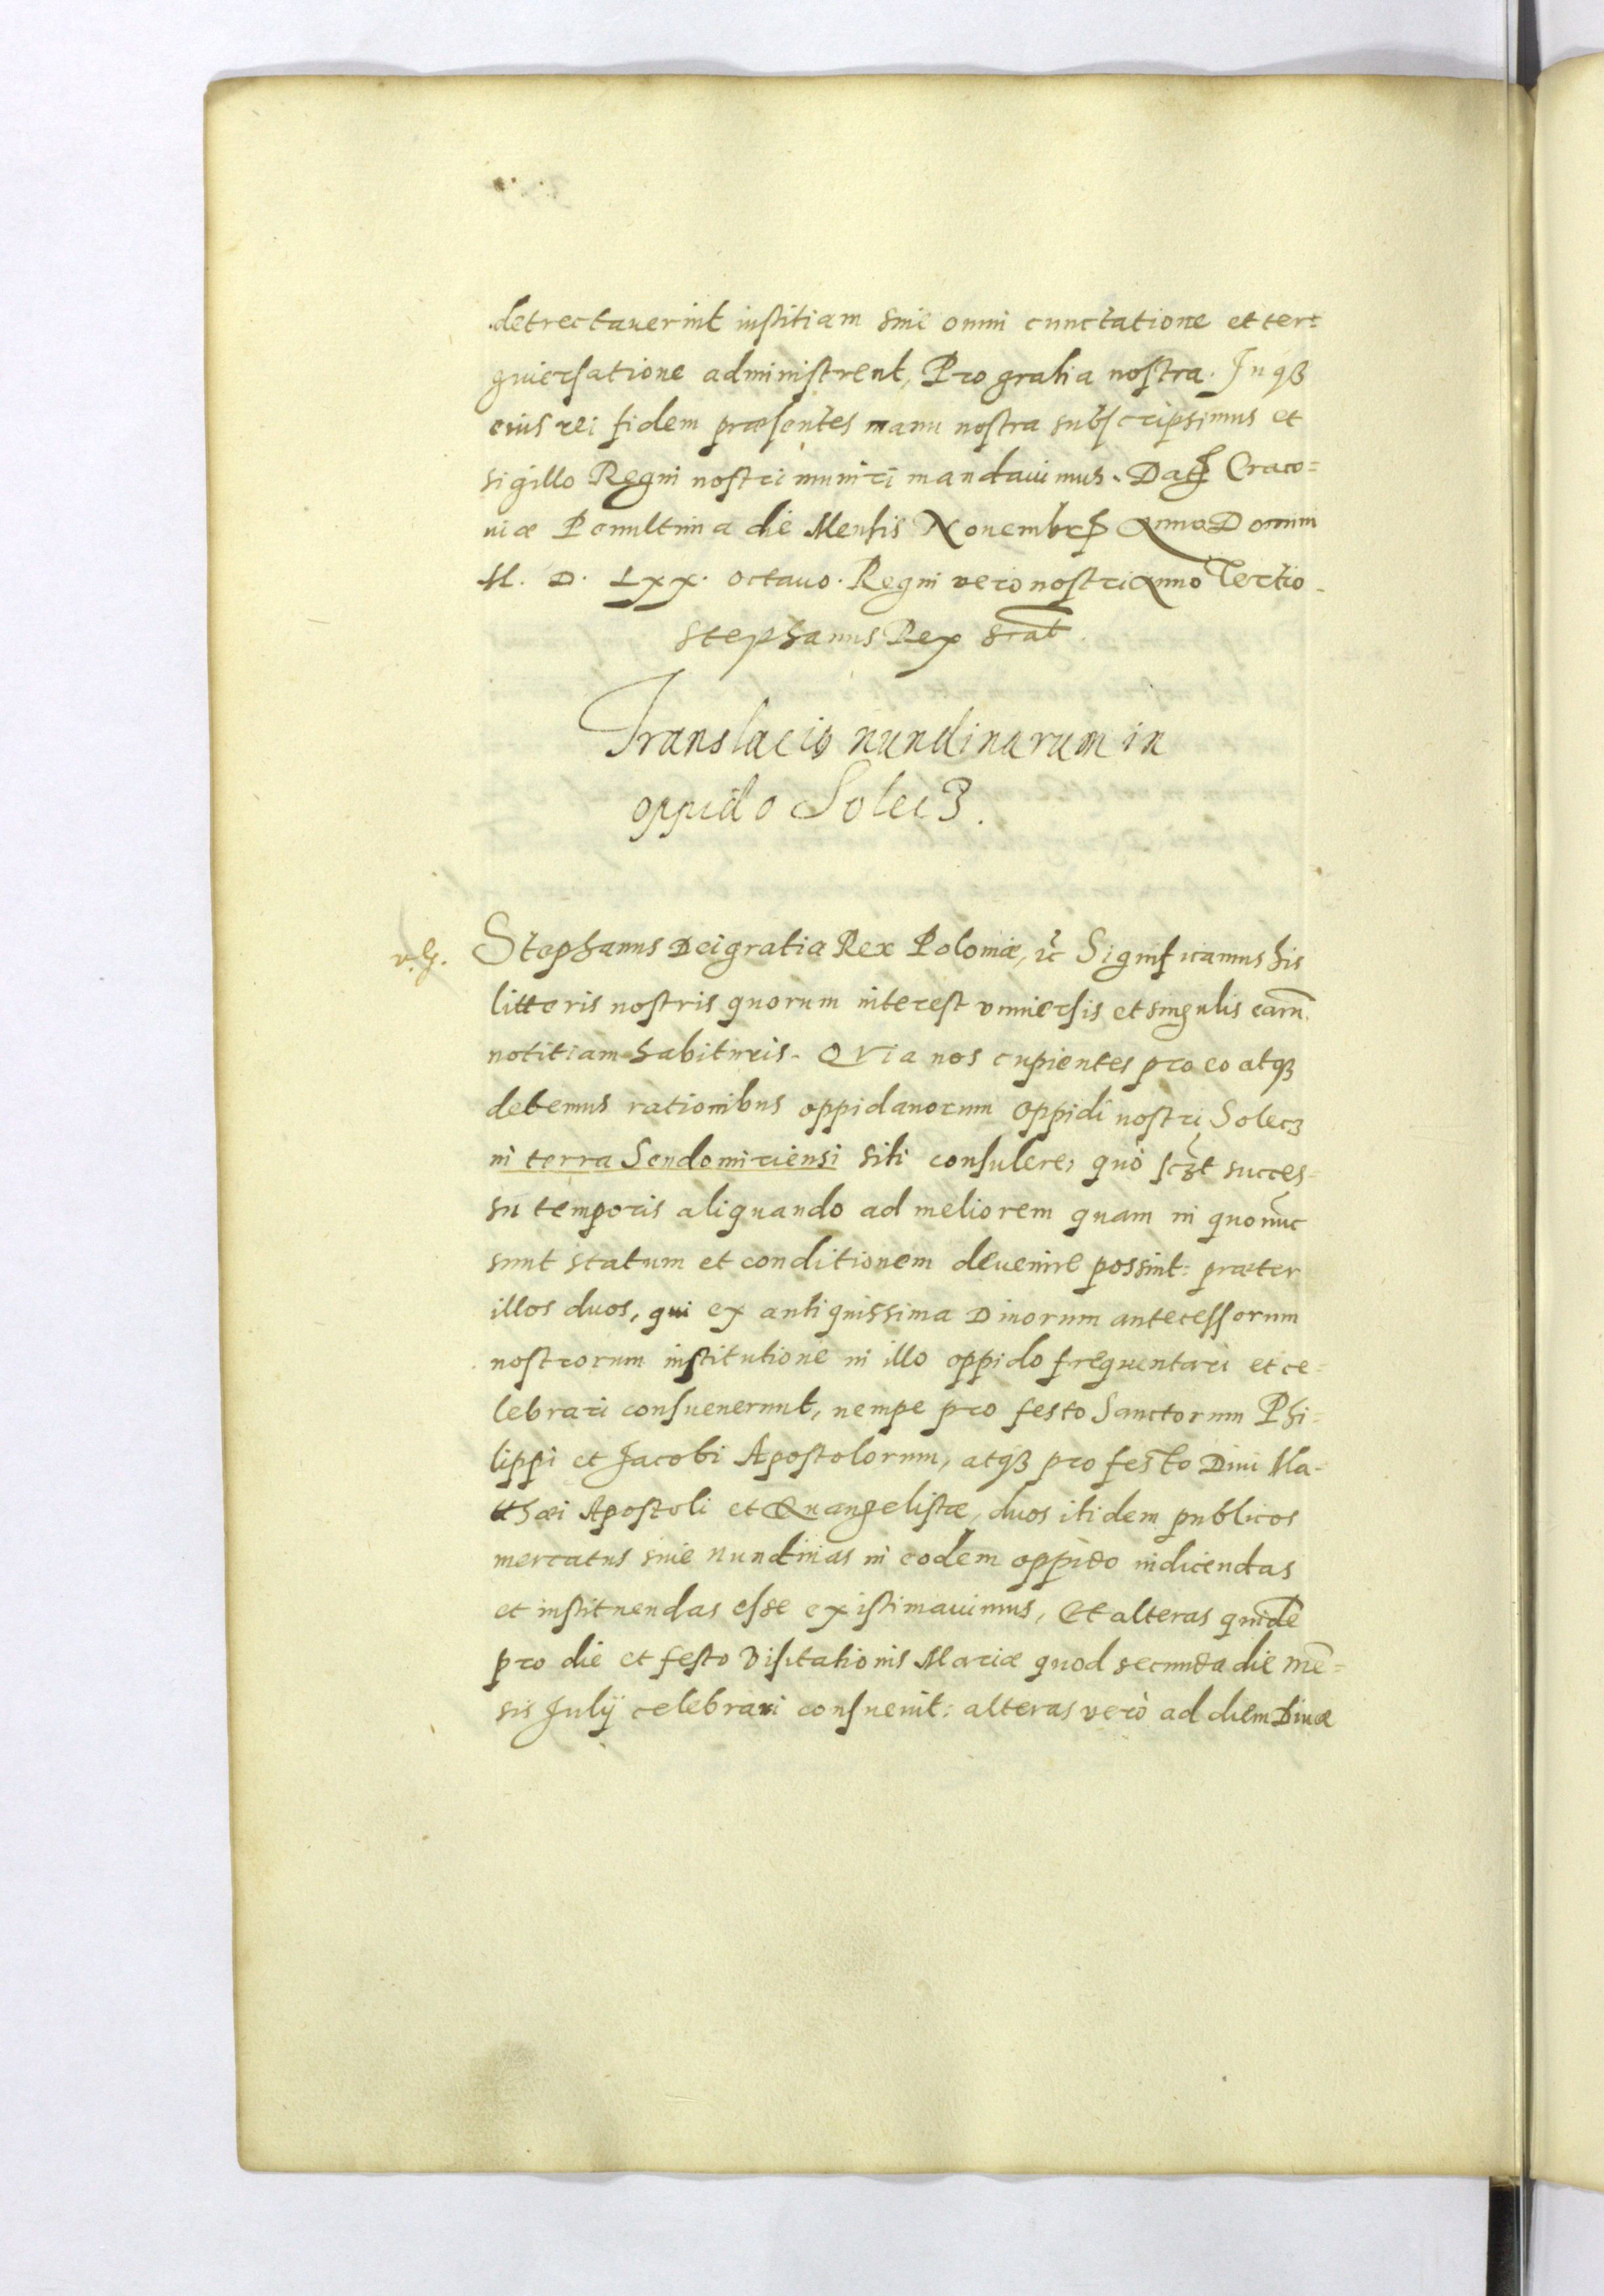 detrectauerint iustitiam siue omni cunctatione et ter=
giuersatione administrent, Pro gratia nostra. In qꝫ
eius rei fidem præsentes manu nostra subscripsimus et
sigillo Regni nostri muniri mandauimus. Datꝭ Craco=
niæ Penultima die Mensis Nouembrꝭ Anno Domini
M. D. LXX. octauo. Regni vero nostri Anno Tertio.
Stephanus Rex scat̄.
Translacio nundinarum in
oppido Solecz.
v. G.
Stephanus Dei gratia Rex Poloniæ, ꝛc̄ Significamus his
litteris nostris quorum interest vniuersis et singulis earū
notitiam habituris. QVia nos cupientes pro eo atqꝫ
debemus rationibus oppidanorum oppidi nostri Solecz
in terra Sendomiriensi siti consulere, quò sczt̄ succes=
su temporis aliquando ad meliorem quam in quo nūc
sunt statum et conditionem deuenire possint: præter
illos duos, qui ex antiquissima Diuorum antecessorum
nostrorum institutione in illo oppido frequentari et ce=
lebrari consueuerunt, nempe pro festo Sanctorum Phi=
lippi et Jacobi Apostolorum, atqꝫ pro festo Diui Ma=
tthæi Apostoli et Euangelistæ, duos itidem publicos
mercatus siue nundinas in eodem oppido indicendas
et instituendas esse existimauimus, Et alteras quidē
pro die et festo Visitationis Mariæ quod secunda die mē=
sis Julij celebrari consueuit: alteras verò ad diem Diuæ